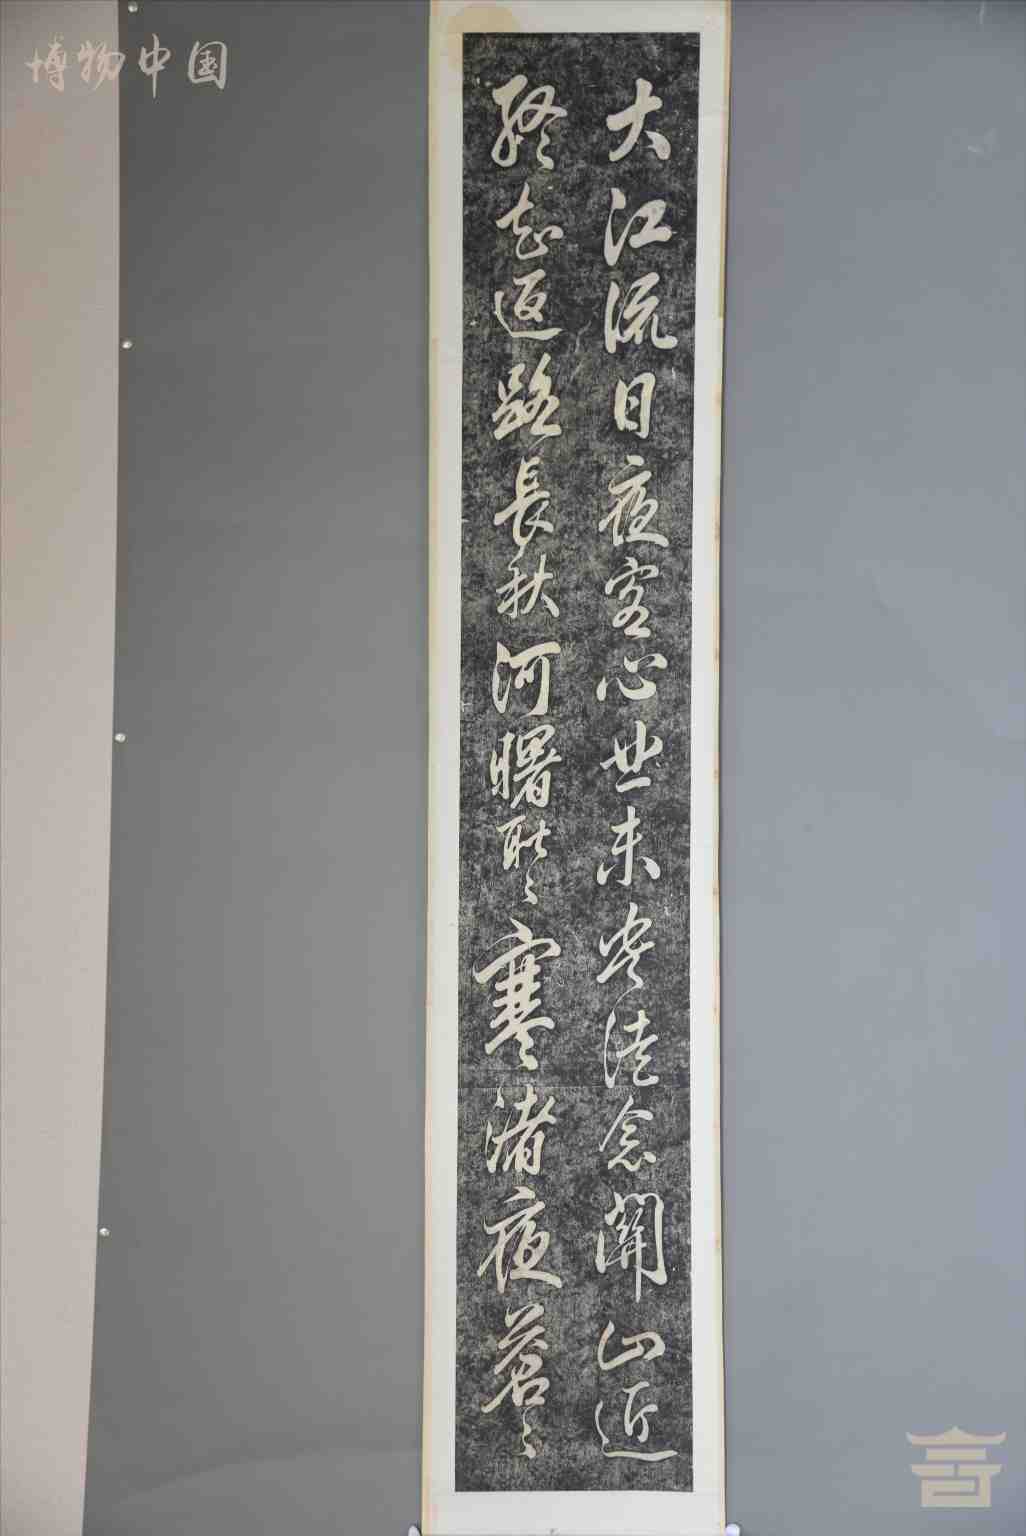 博物中国
大江流日夜客心悲未央徒念關山近
終知返路長秋河曙耿〻寒渚夜蒼〻